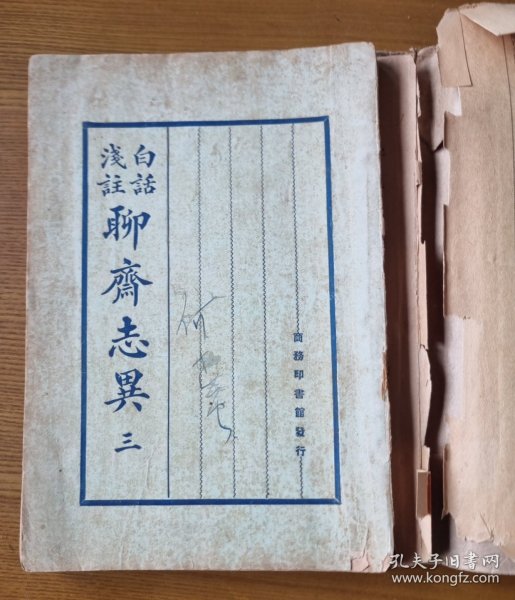 白話
淺註
聊齋志異 三
商務印書館發行
孔夫子旧书网
www.kongfz.com